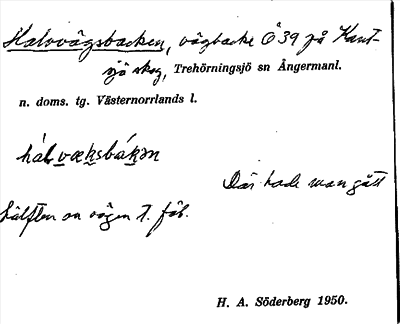 Halvvägsbacken, vägbacke Ö 39 på Kant-
sjö skog, Trehörningsjö sn Ångermanl.
n. doms. tg. Västernorrlands l.
hálvæksbákən
Där hade man gått
hälften av vägen t. fäb.
H. A. Söderberg 1950.